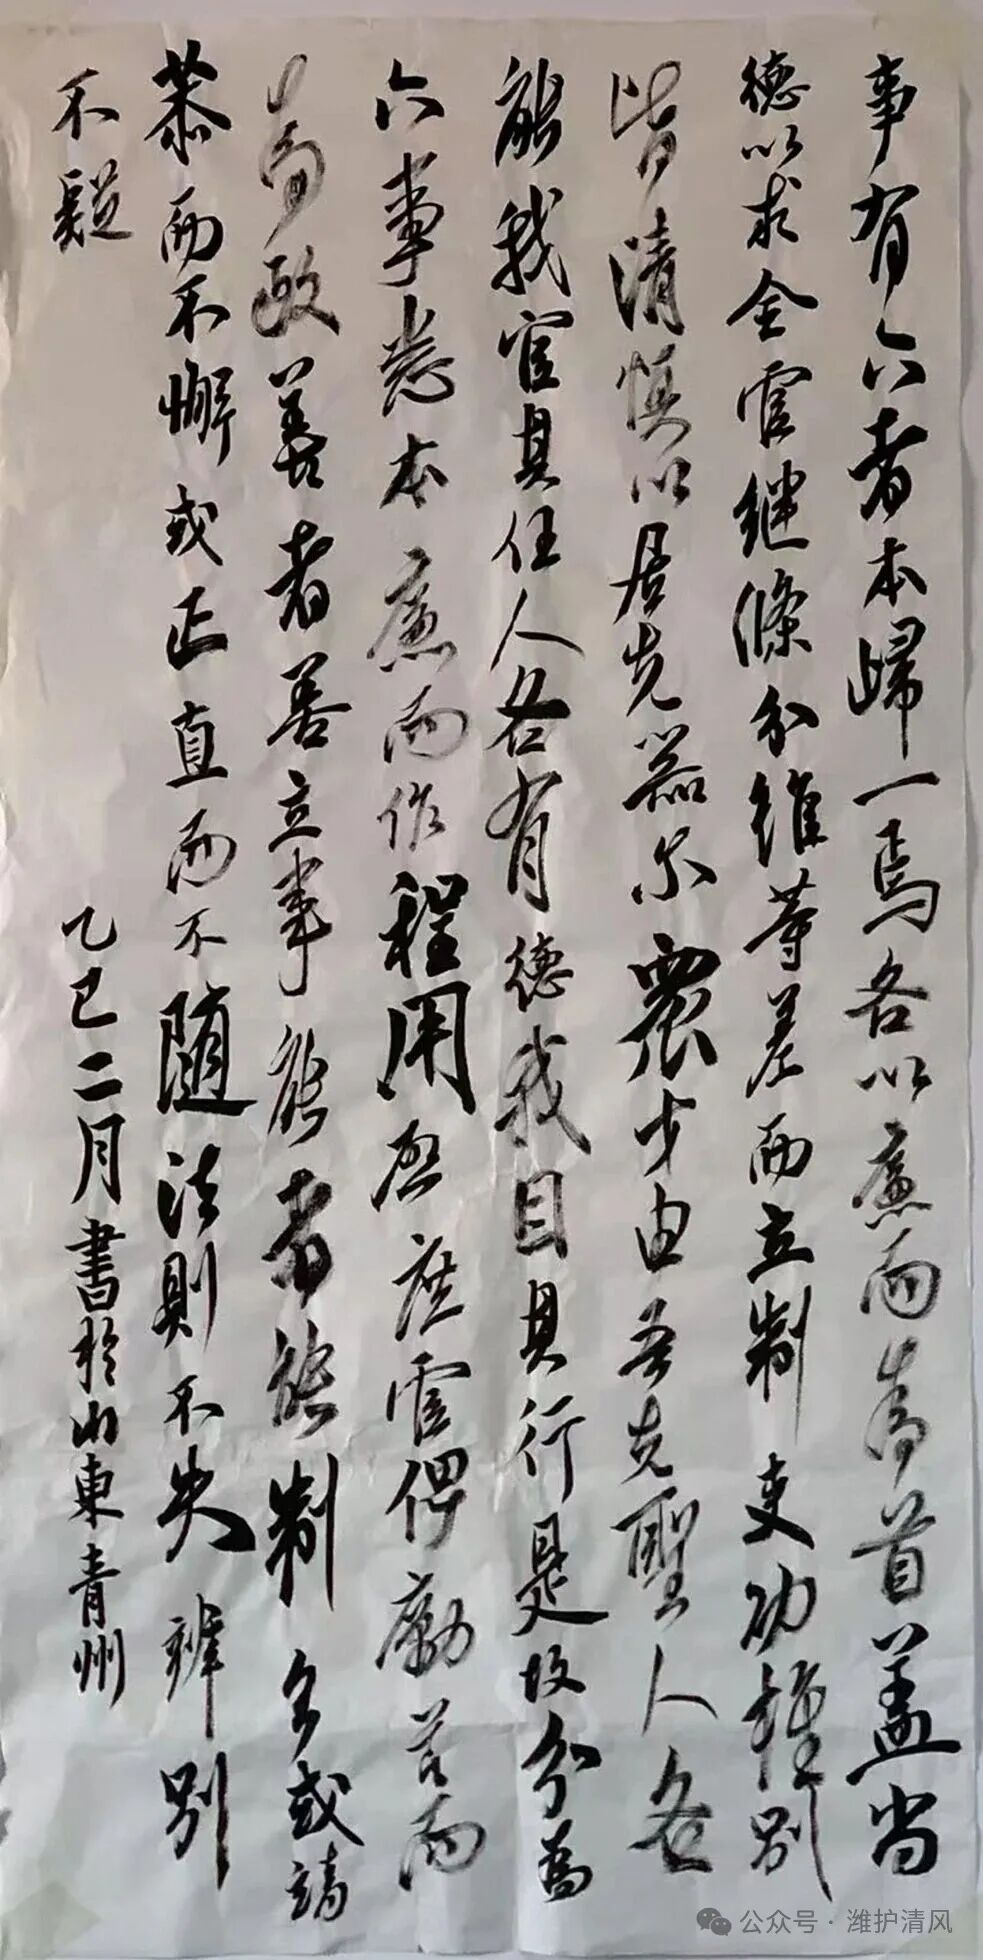 事有六者本歸一焉各以廉而為首蓋尚
德以求全官继條分維等差而立制吏功難別
皆清慎以居先器尔眾才由吾先聖人各
能我官其任人各有德我目其行是故分為
六事悉本廉而作程用啟庶官俾勵節而
為政善者善立事能者能制命或靖
恭而不懈或正直而不隨法則不失辨別
不疑
乙巳二月書於山東青州
公众号·潍护清风